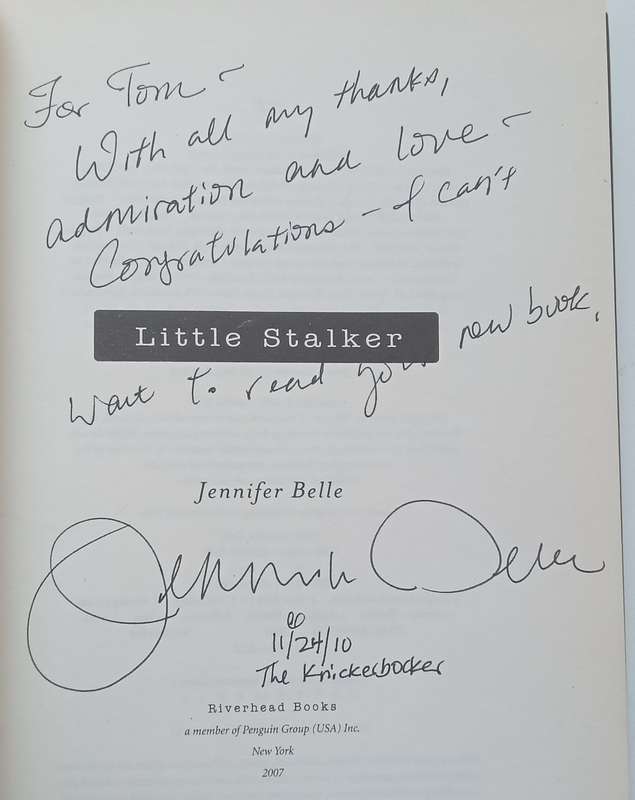 For Tom ~
With all my thanks,
admiration and love ~
Congratulations - I can't
Little Stalker
want to read your new book.
Jennifer Belle
Jennifer Belle
11/24/10
The Knickerbocker
Riverhead Books
a member of Penguin Group (USA) Inc.
New York
2007